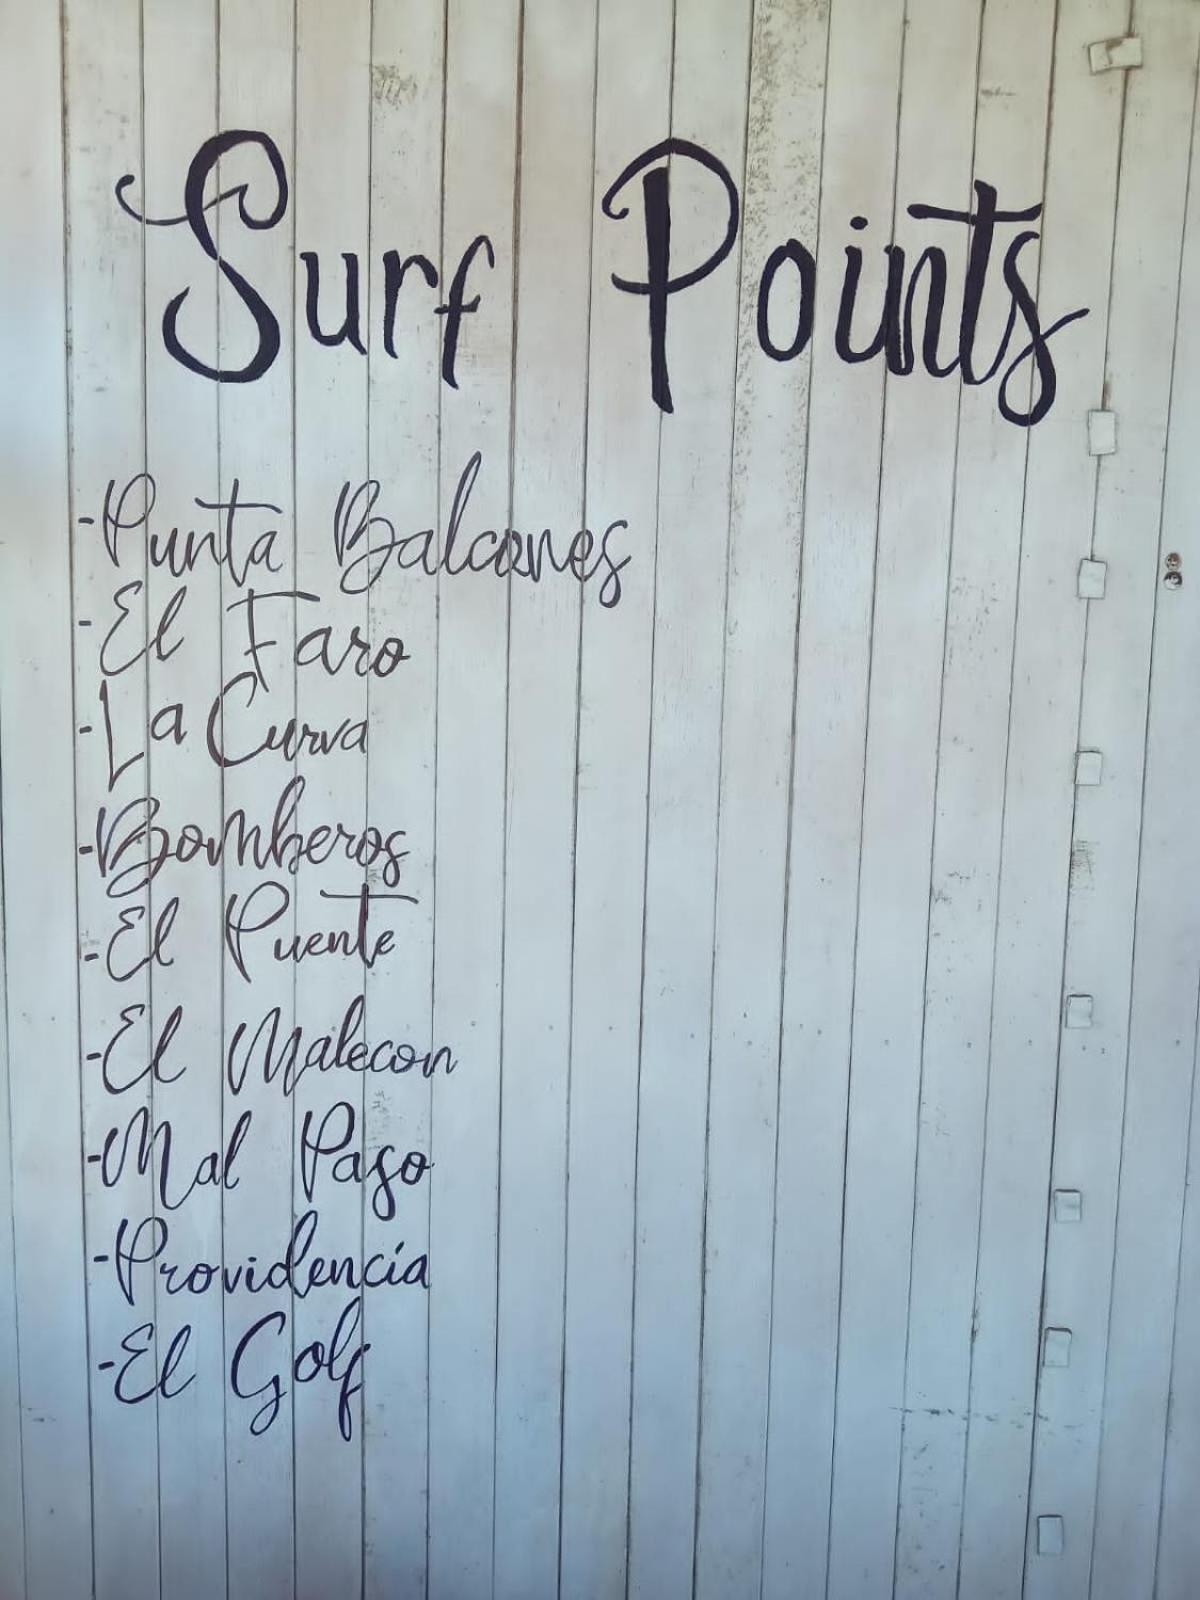 Surf Points
-Punta Balcones
-El Faro
-La Curva
-Bomberos
-El Puente
-El Malecon
-Mal Paso
-Providencia
-El Golf